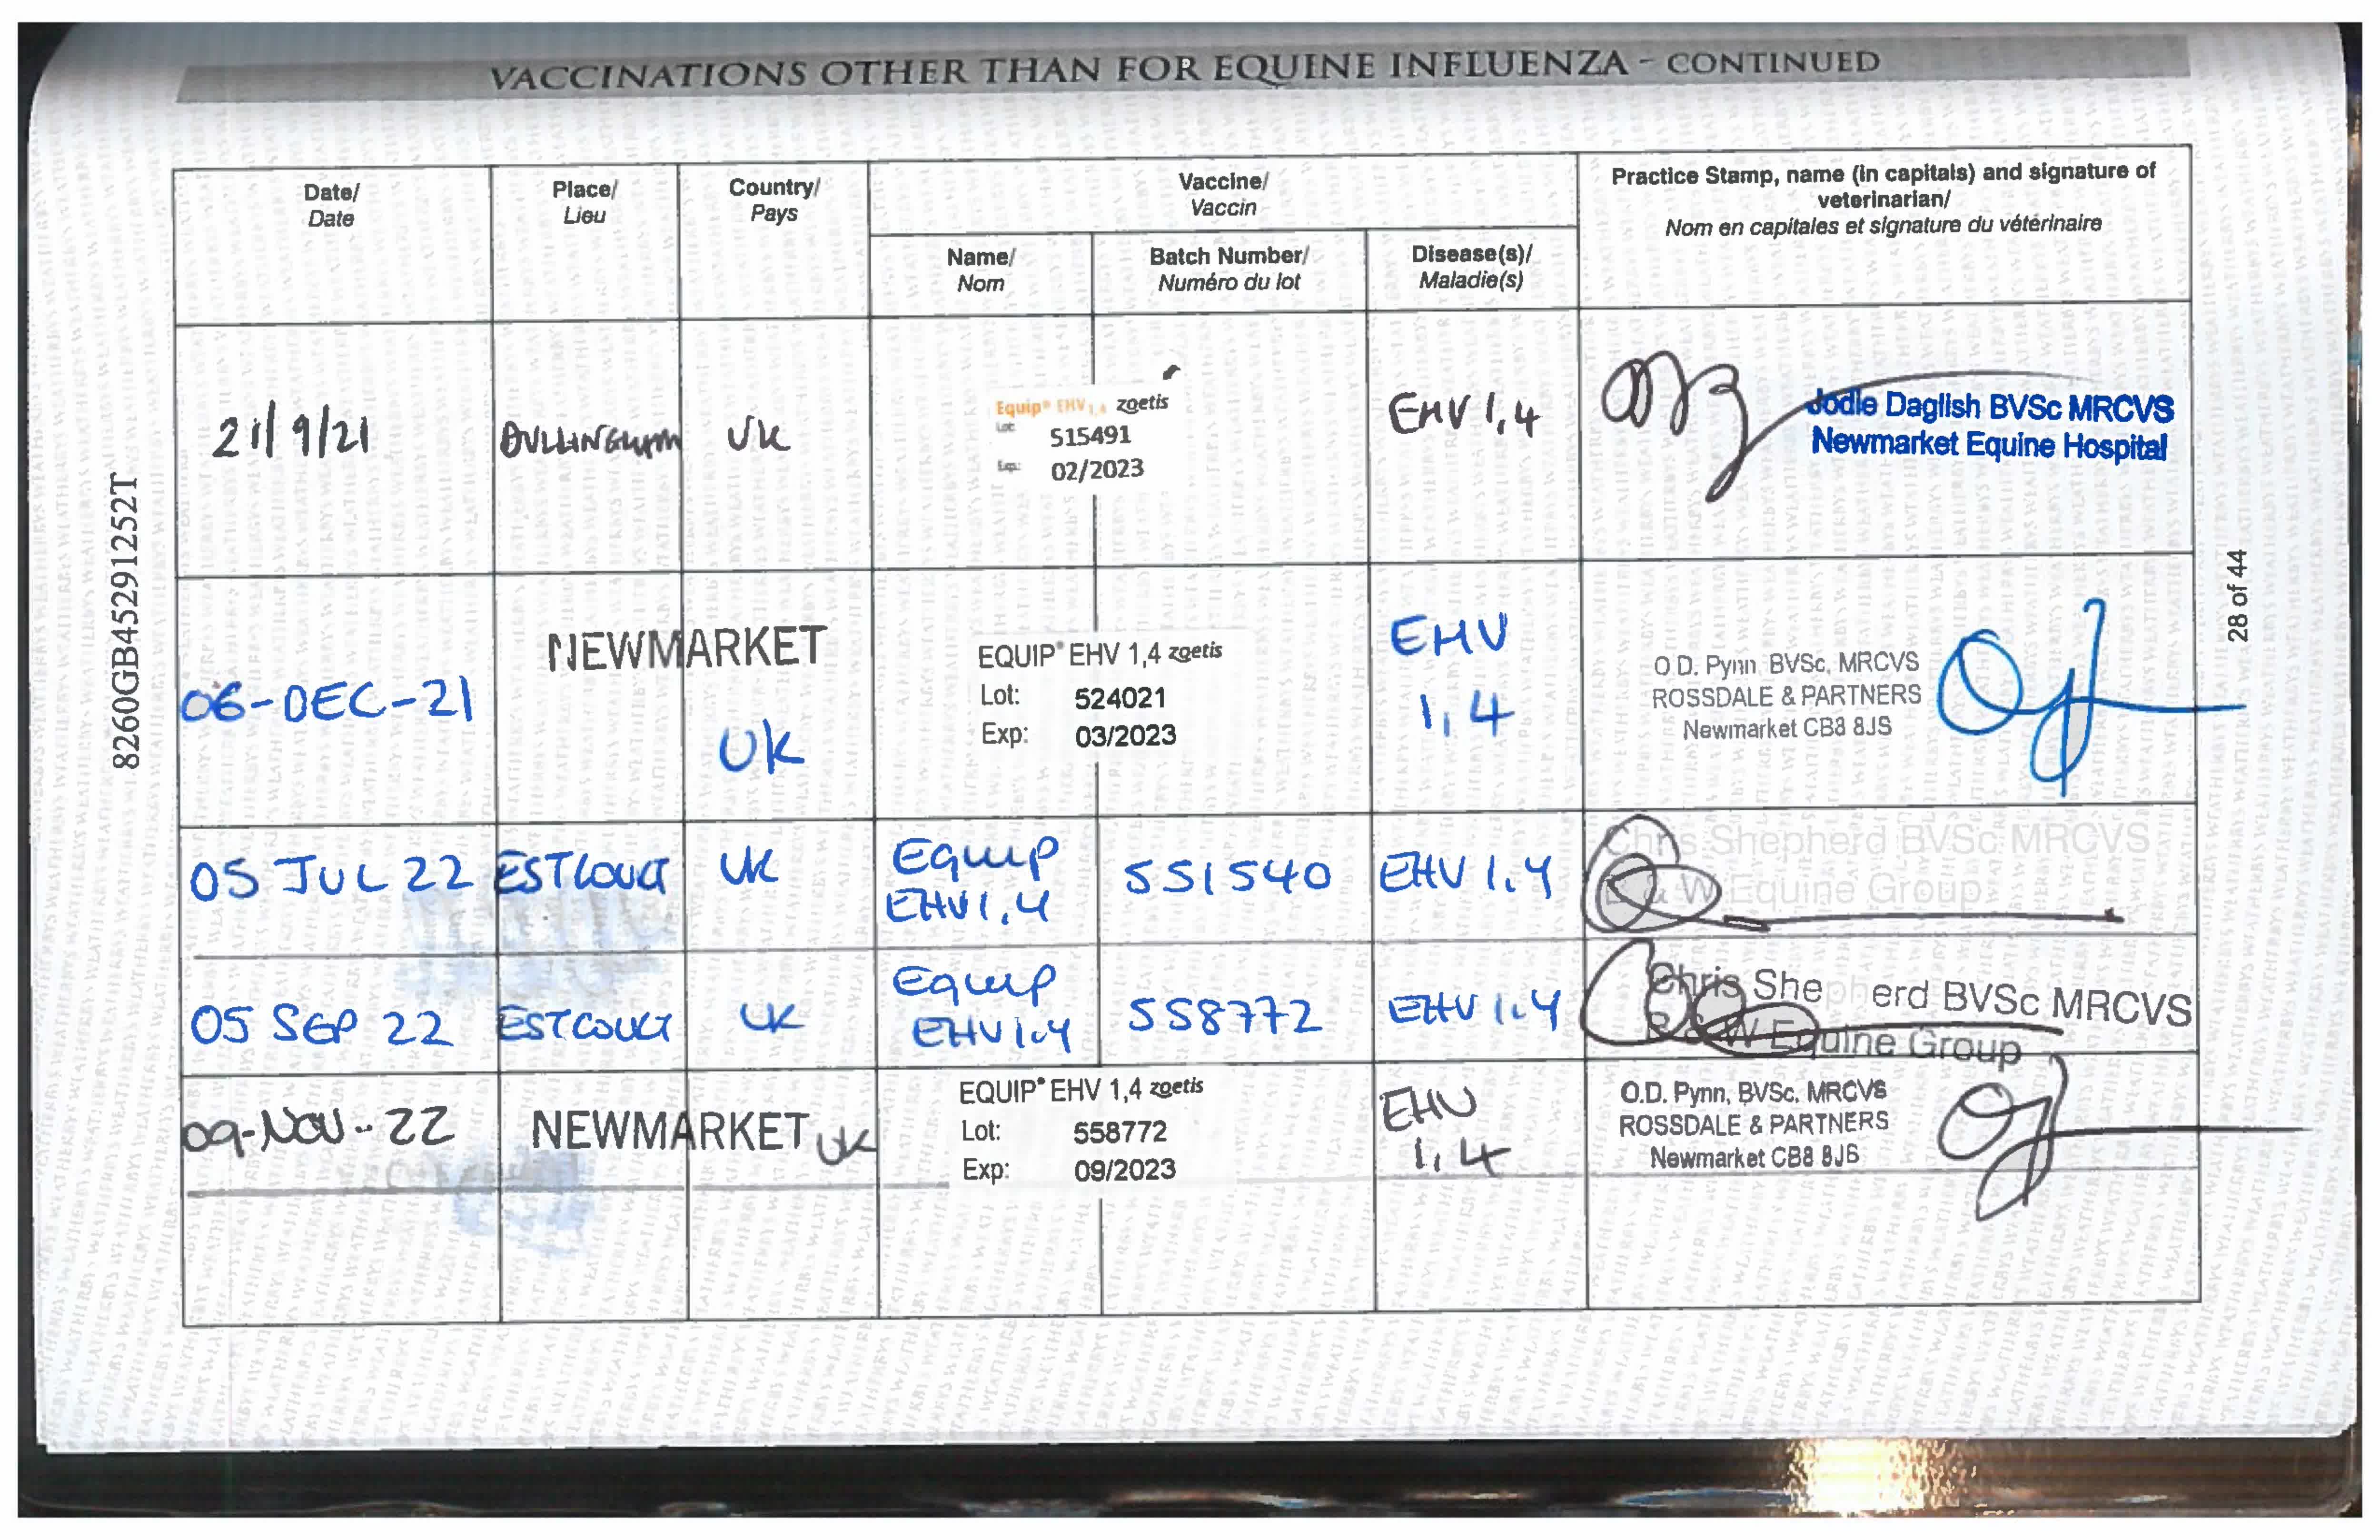 VACCINATIONS OTHER THAN FOR EQUINE INFLUENZA - CONTINUED
Date/
Date
Place/
Lieu
Country/
Pays
Vaccine/
Vaccin
Name/
Nom
Batch Number/
Numéro du lot
Disease(s)/
Maladie(s)
Practice Stamp, name (in capitals) and signature of
veterinarian/
Nom en capitales et signature du vétérinaire
21/9/21 DULLINGHAM UK
Equip® EHV 1,4 zoetis
Lot: 515491
Exp: 02/2023
EHV 1,4
Jodie Daglish BVSc MRCVS
Newmarket Equine Hospital
06-DEC-21
NEWMARKET
UK
EQUIP® EHV 1,4 zoetis
Lot: 524021
Exp: 03/2023
EHV
1,4
O.D. Pynn, BVSc, MRCVS
ROSSDALE & PARTNERS
Newmarket CB8 8JS
05 JUL 22 ESTCOURT UK
Equip
EHV 1,4
551540
EHV 1.4
Chris Shepherd BVSc MRCVS
B & W Equine Group
05 SEP 22 ESTCOURT UK
Equip
EHV 1.4
558772
EHV 1.4
Chris Shepherd BVSc MRCVS
B & W Equine Group
09-NOV-22 NEWMARKET UK
EQUIP® EHV 1,4 zoetis
Lot: 558772
Exp: 09/2023
EHV
1,4
O.D. Pynn, BVSc, MRCVS
ROSSDALE & PARTNERS
Newmarket CB8 8JS
8260GB45291252T
28 of 44